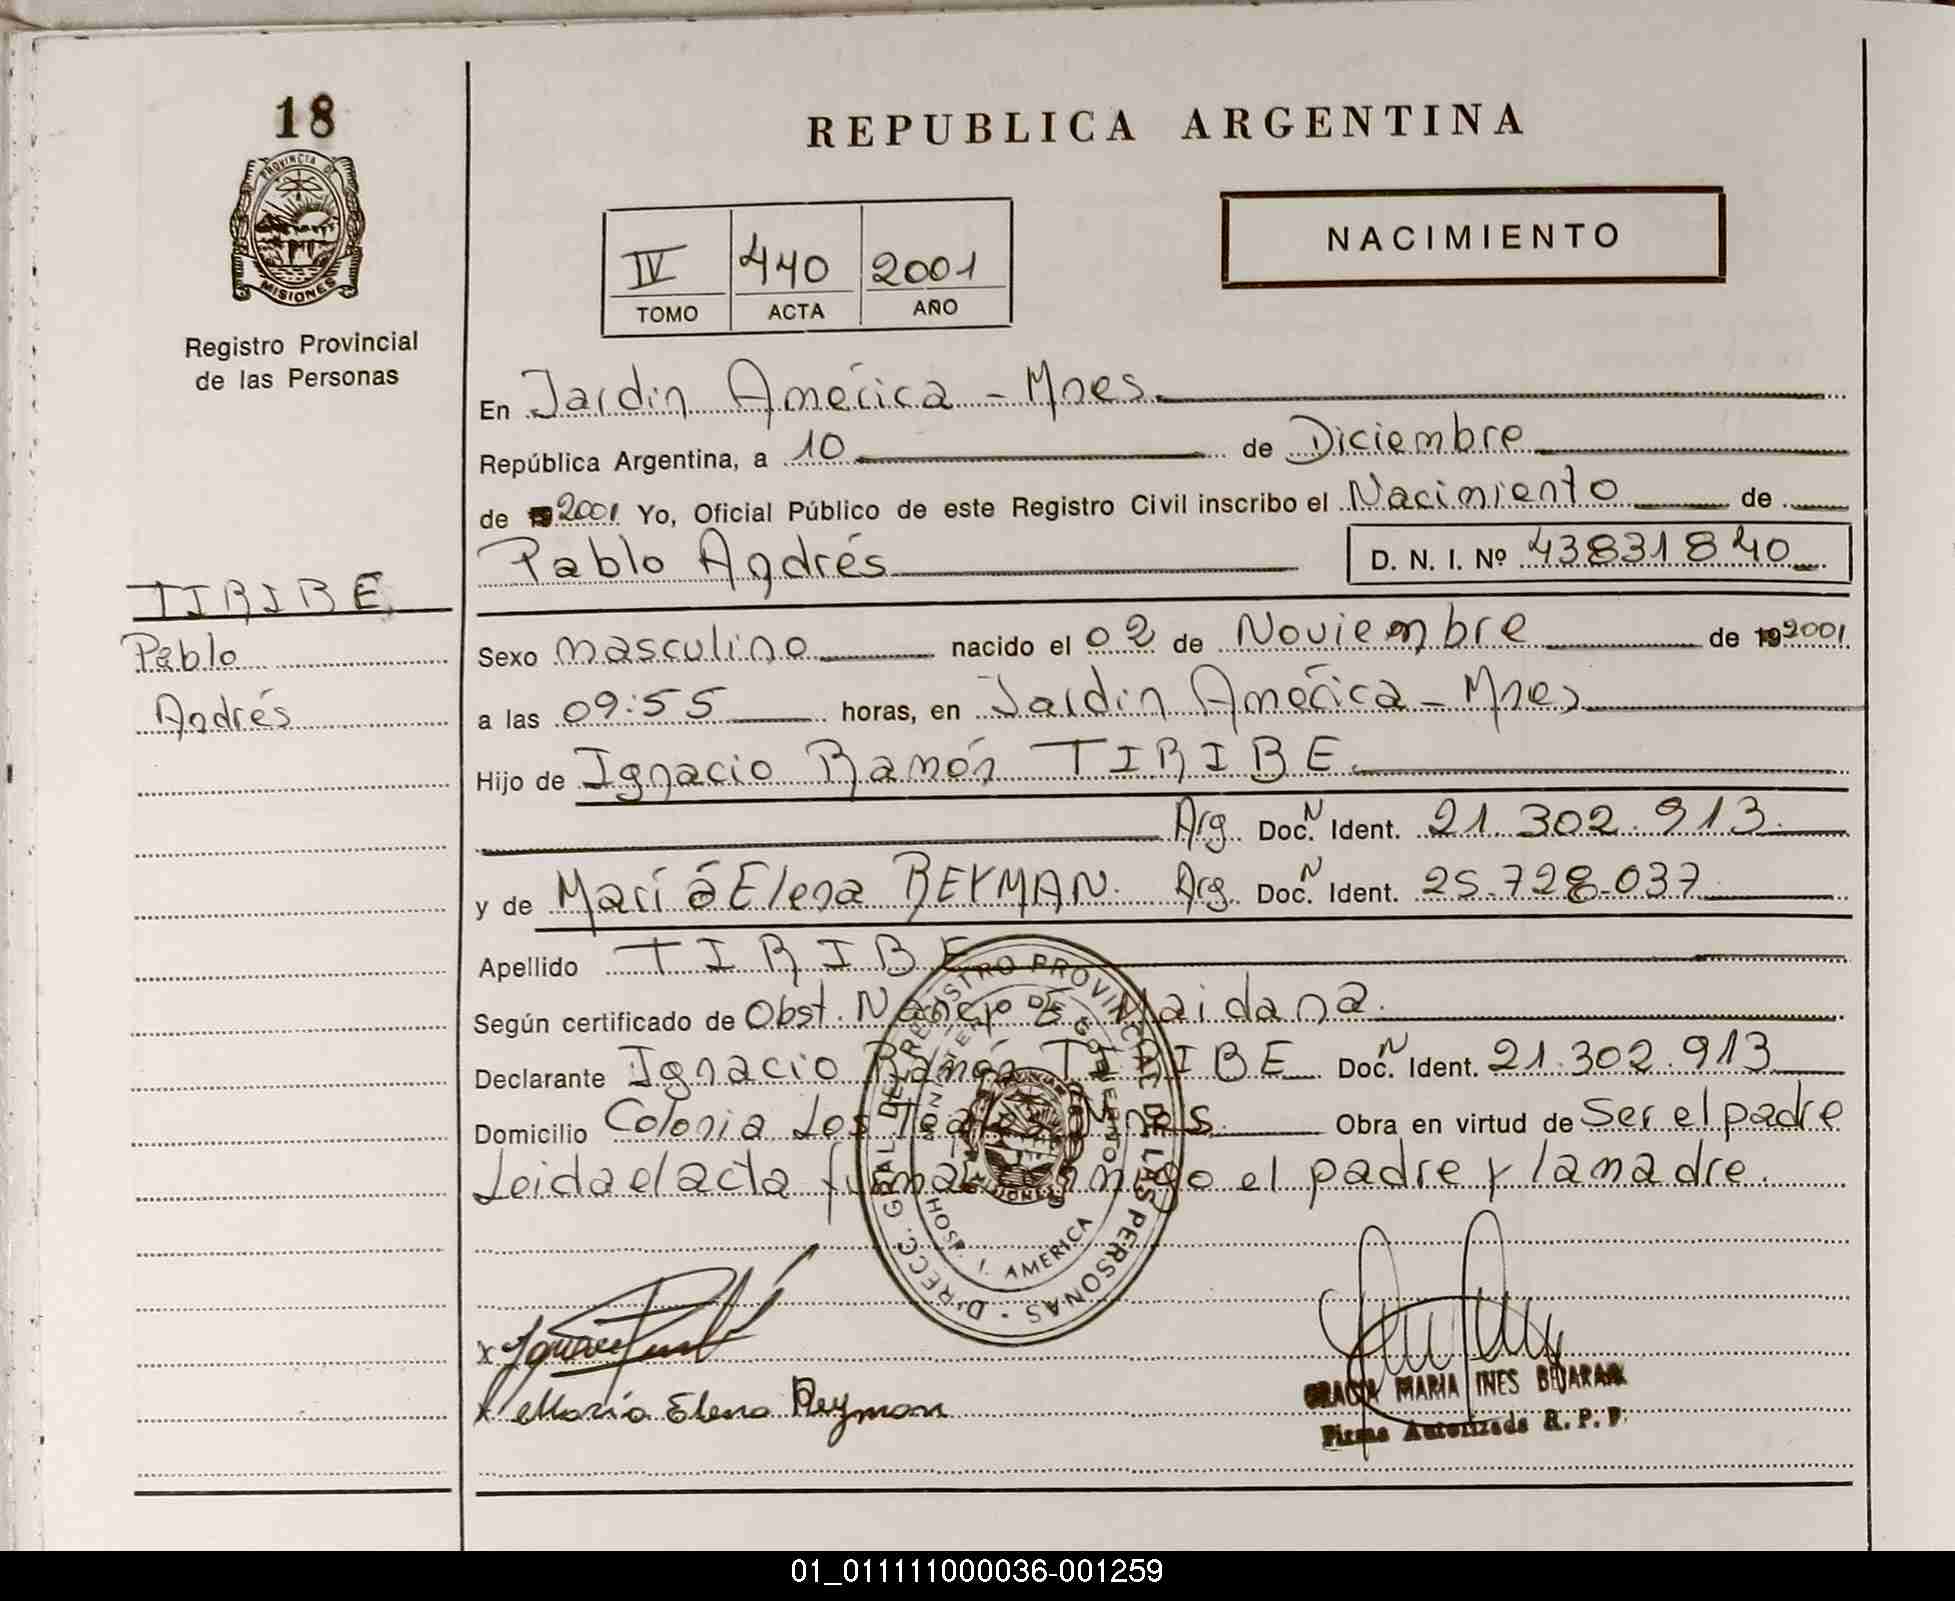 18
PROVINCIA DE
MISIONES
Registro Provincial
de las Personas
TIRIBE
Pablo
Andrés
REPUBLICA ARGENTINA
IV 440 2001
TOMO ACTA AÑO
NACIMIENTO
En Jardín América - Mnes
República Argentina, a 10 de Diciembre
de 2001 Yo, Oficial Público de este Registro Civil inscribo el Nacimiento de
Pablo Andrés D. N. I. Nº 43831840
Sexo masculino nacido el 02 de Noviembre de 192001
a las 09:55 horas, en Jardín América - Mnes
Hijo de Ignacio Ramón TIRIBE
Arg. Doc. N Ident. 21.302.913.
y de María Elena REYMAN. Arg. Doc. N Ident. 25.728.037
Apellido TIRIBE
Según certificado de Obst. Nancy E. Maidana.
Declarante Ignacio Ramón TIRIBE Doc. N Ident. 21.302.913
Domicilio Colonia Los Mnes. Obra en virtud de Ser el padre
Leida el acta firman conmigo el padre y la madre.
DIRECC. GRAL DEL REGISTRO PROVINCIAL DE LAS PERSONAS
MINISTERIO DE GOBIERNO
HOSP. J. AMERICA
MISIONES
x
x María Elena Reyman
GRACIA MARIA INES BEJARANO
Firma Autorizada R. P. P.
01_011111000036-001259